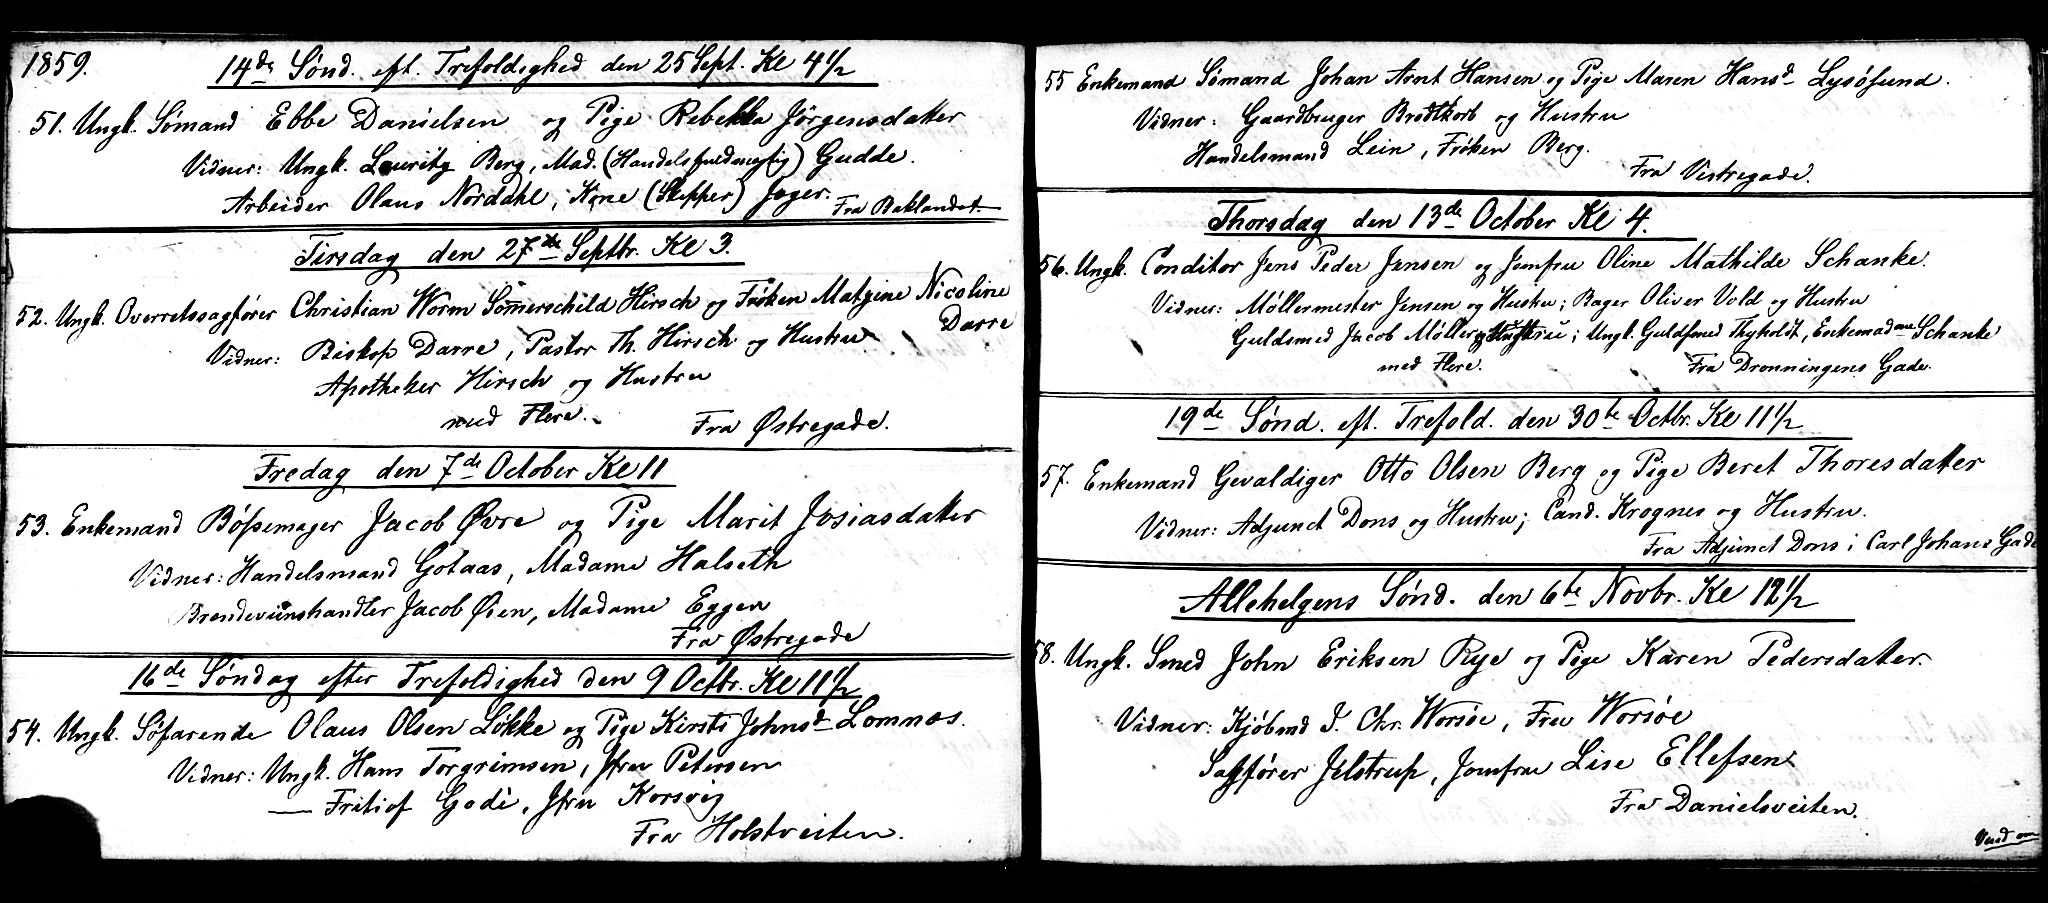 1859.
14de Sønd. eft. Trefoldighed den 25 Sept. Kl 4 1/2
51. Ungk. Sømand Ebbe Danielsen og Pige Rebekka Jørgensdatter
Vidner: Ungk. Lauritz Berg, Mad. (Handelsfuldmægtig) Gudde.
Arbeider Olaus Nordahl, Kone (Skipper) Jager. Fra Baklandet.
Tirsdag den 27de Septbr. Kl 3.
52. Ungk. Overretssagfører Christian Worm Sommerschild Hirsch og Frøken Matzine Nicoline
Darre
Vidner: Biskop Darre, Pastor Th. Hirsch og Hustru
Apotheker Hirsch og Hustru
med Flere.
Fra Østregade.
Fredag den 7de October Kl 11
53. Enkemand Bøssemager Jacob Øvre og Pige Marit Josiasdatter
Vidner: Handelsmand Gotaas, Madame Halseth
Brendeviinshandler Jacob Øien, Madame Eggen
Fra Østregade
16de Søndag efter Trefoldighed den 9 Octbr. Kl 11 1/2
54. Ungk. Søfarende Olaus Olsen Løkke og Pige Kirsti Johnsd. Lomnæs.
Vidner: Ungk. Hans Torgrimsen, Jfru Petersen
— Fritiof Gade, Jfru Korsvig
Fra Holstveiten.
55 Enkemand Sømand Johan Arnt Hansen og Pige Maren Hansd. Lysøsund.
Vidner: Gaardbruger Brodtkorb og Hustru
Handelsmand Lein, Frøken Berg.
Fra Vestregade.
Thorsdag den 13de October Kl 4.
56. Ungk. Conditor Jens Peder Jensen og Jomfru Oline Mathilde Schanke.
Vidner: Møllermester Jensen og Hustru; Bager Oliver Vold og Hustru
Guldsmed Jacob Møller og Hustru; Ungk. Guldsmed Thyholdt, Enkemadme Schanke
med Flere.
Fra Dronningens Gade.
19de Sønd. eft. Trefold. den 30te Octbr. Kl 11 1/2
57. Enkemand Gevaldiger Otto Olsen Berg og Pige Beret Thoresdatter
Vidner: Adjunct Dons og Hustru; Cand. Krognes og Hustru.
Fra Adjunct Dons i Carl Johans Gade
Allehelgens Sønd. den 6te Novbr. Kl 12 1/2
58. Ungk. Smed John Eriksen Rye og Pige Karen Pedersdatter.
Vidner: Kjøbmd J. Chr. Worsøe, Fru Worsøe
Sagfører Jelstrup, Jomfru Lise Ellefsen
Fra Danielsveiten.
Vend om